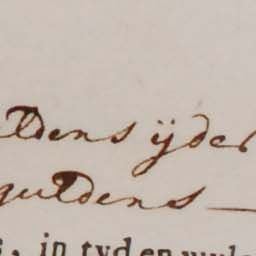 ldens ijder
guldens —
s, in tyd en wyle